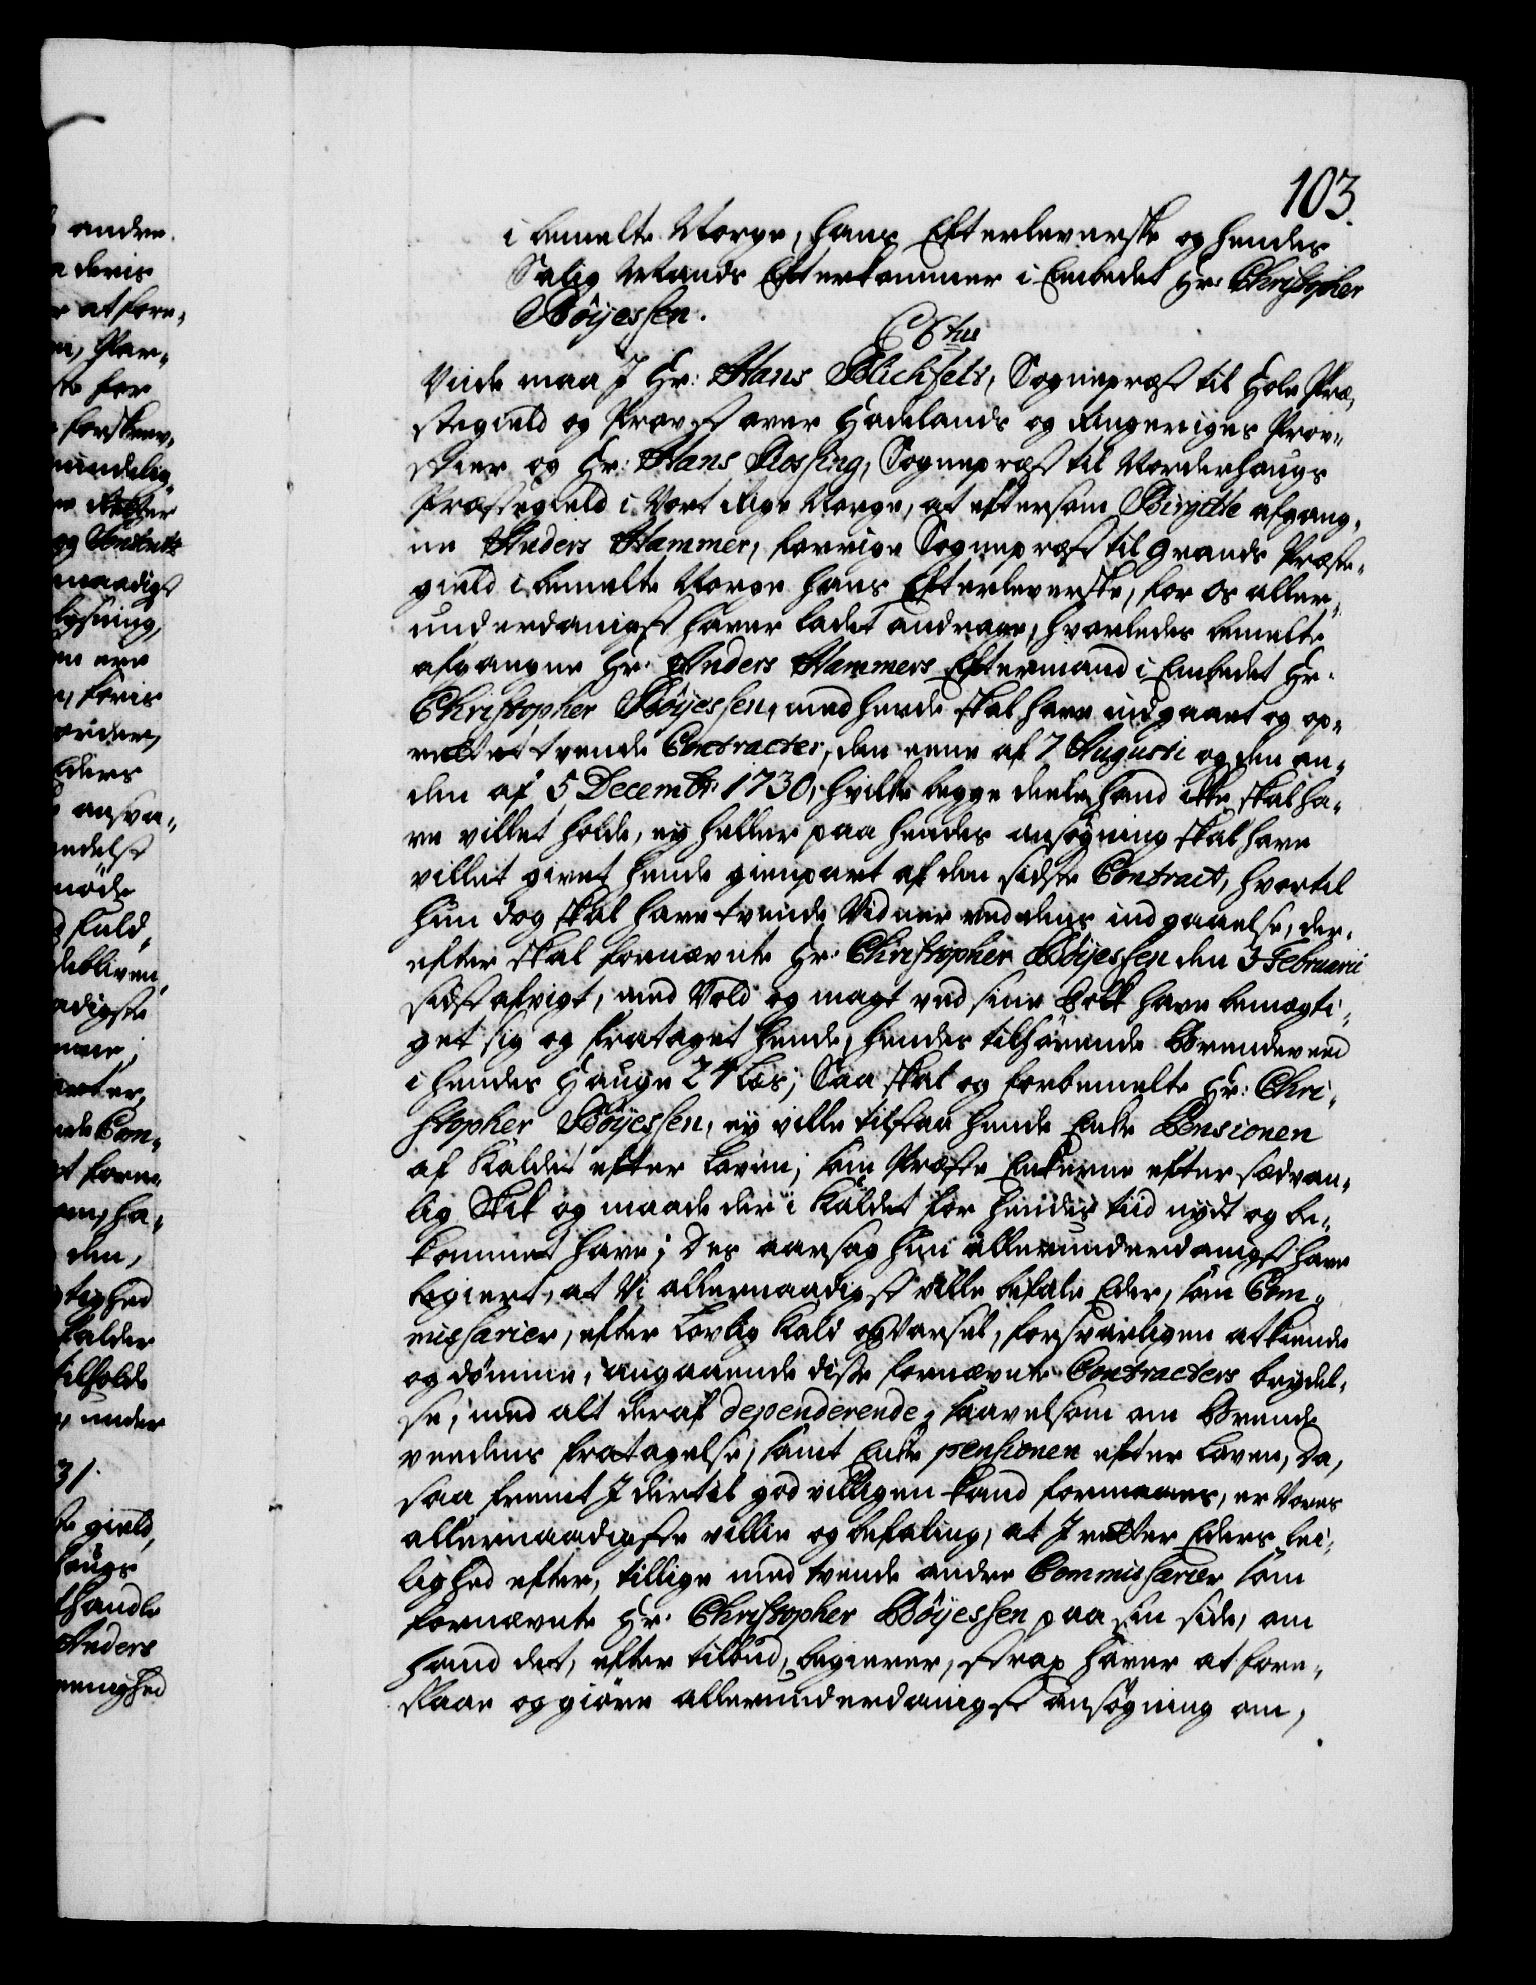 103.
i bemelte Norge, hans Efterleverske og hendes
Salig Mands Efterkommer i Embedet Hr: Christopher
Böyessen.
C 6tus
Viide maa I Hr: Hans Blichfelt, Sognepræst til Hole Præ,
stegield og Provst over Hadelands og Ringeriges Prov,,
stier og Hr: Hans Rossing, Sognepræst til Norderhaugs
Præstegield i Vort Rige Norge, at eftersom Birgitte afgang,
ne Anders Hammer, forrige Sognepræst til Grands Præste,,
gield i bemelte Norge hans Efterleverske, for os aller,,
underdanigst haver ladet andrage, hvorledes bemelte
afgangne Hr. Anders Hammers Eftermand i Embedet Hr.
Christopher Böyessen, med hende skal have indgaaet og op,,
rettet tvende Contracter, den eene af 7 Augusti og den an,,
den af 5 Decembr: 1730, hvilke begge deele hand ikke skal ha,,
ve villet holde, ey heller paa hendes ansögning skal have
villet givet hende gienpart af den sidste Contract, hvortil
hun dog skal have tvende Vidner ved dens indgaaelse, der,
efter skal fornævnte Hr: Christopher Böyessen den 3 Februarii
sidst afvigt, med Vold og magt ved sine Folk have bemægti,,
get sig og frataget hende, hendes tilhörende Brendeveed
i hendes Hauge 24 Læs; Saa skal og forbemelte Hr: Chri,
stopher Böyessen, ey ville tilstaa hende Enke Pensionen
af Kaldet efter Loven; som Præste Enkerne efter sædvan,,
lig Skik og maade der i Kaldet for hendes tiid nydt og be,,
kommet have; Des aarsag hun allerunderdanigst have
begiert, at Vi allernaadigst ville befale Eder, som Com,,
missarier, efter Lovlig Kald og Varsel, forsvarligen at kiende
og dömme, angaaende disse fornævnte Contracters brydel,
se, med alt deraf dependerende, saavelsom om Brende
veedens fratagelse, samt Enke pensionen efter Loven, Da,
saa fremt I dertil godvilligen kand formaaes, er Vores
allernaadigste villie og befaling, at I retter Eders lei,
lighed efter, tillige med tvende andre Commissarier som
fornævnte Hr. Christopher Böyessen paa sin side, om
hand det, efter tilbud, begierer, strax haver at fore,,
slaae og giöre allerunderdanigst ansögning om,